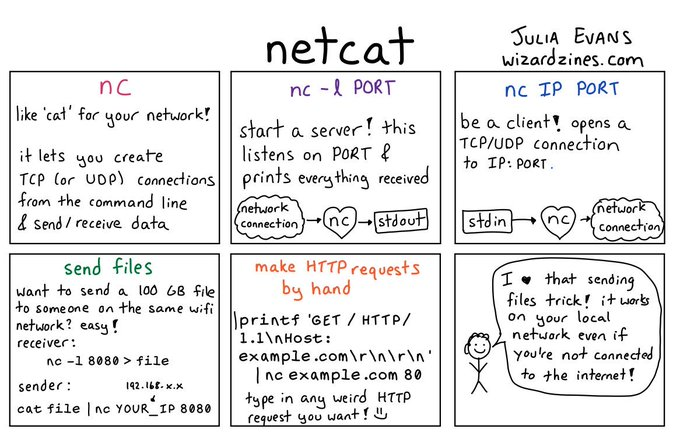 netcat
JULIA EVANS
wizardzines.com
nc
like 'cat' for your network!
it lets you create
TCP (or UDP) connections
from the command line
& send/receive data
nc -l PORT
start a server! this
listens on PORT &
prints everything received
network
connection
nc
stdout
nc IP PORT
be a client! opens a
TCP/UDP connection
to IP:PORT.
stdin
nc
network
connection
send files
want to send a 100 GB file
to someone on the same wifi
network? easy!
receiver:
nc -l 8080 > file
sender:
192.168.x.x
cat file | nc YOUR_IP 8080
make HTTP requests
by hand
|printf 'GET / HTTP/
1.1\nHost:
example.com\r\n\r\n'
| nc example.com 80
type in any weird HTTP
request you want! :)
I ♥ that sending
files trick! it works
on your local
network even if
you're not connected
to the internet!